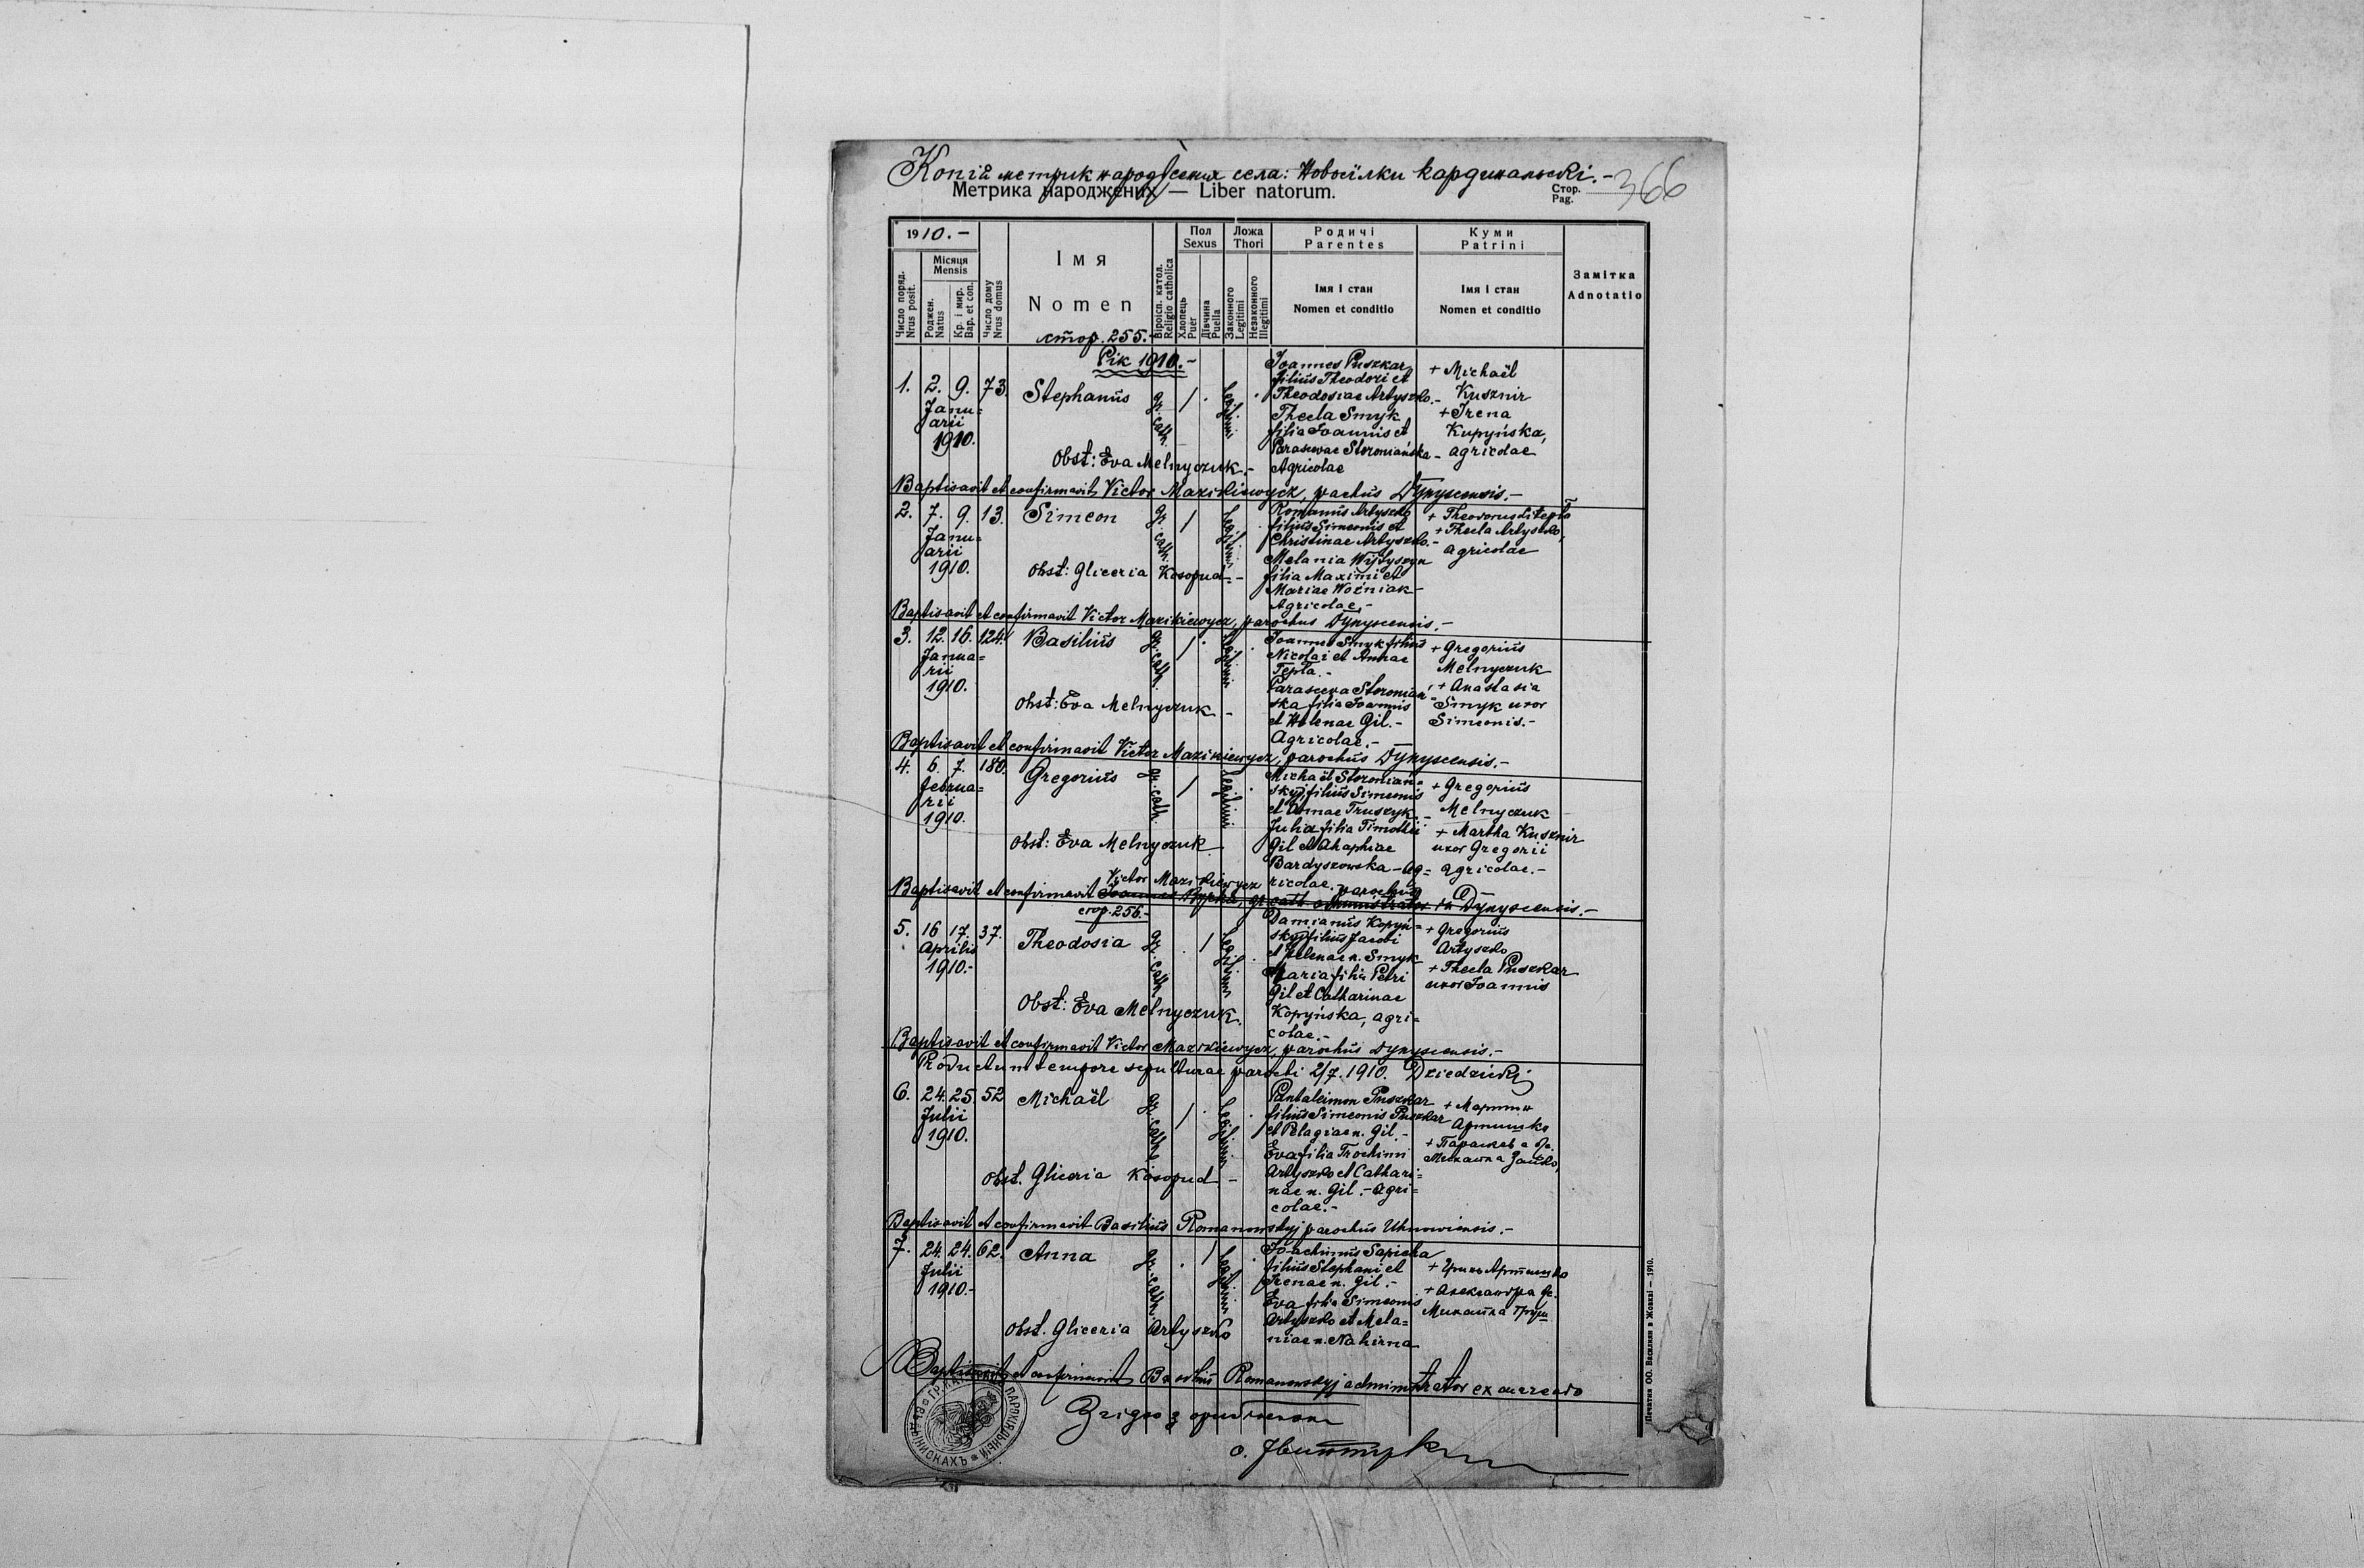 Копія метрик народжених села: Новосілки кардинальскі.- 366
Метрика народжених — Liber natorum.
Стор.
Pag.
1910.-
Число поряд.
Nrus posit.
Місяця
Mensis
Роджен.
Natus
Кр. і мир.
Bap. et con.
Число дому
Nrus domus
Імя
Nomen
стор. 255.
Віроісп. катол.
Religio catholica
Пол
Sexus
Хлопець
Puer
Дївчина
Puella
Ложа
Thori
Законного
Legitimi
Незаконного
Illegitimi
Родичі
Parentes
Імя і стан
Nomen et conditio
Куми
Patrini
Імя і стан
Nomen et conditio
Замітка
Adnotatio
Рік 1910.-
1. 2. 9. 73. Stephanus gr. cath. / . Legitimi .
Janu=
arii
1910.
Obst: Eva Melnyczuk.-
Joannes Puszkar
filius Theodori et
Theodosiae Artyszko.-
Thecla Smyk
filia Joannis et
Parascevae Storoniańska -
Agricolae
+ Michaël
Kusznir
+ Irena
Kupyńska,
agricolae
Baptisavit et confirmavit Victor Mazikiewycz, parochus Dynyscensis.-
2. 7. 9. 13. Simeon gr. cath. / Legitimi .
Janu=
arii
1910.
Obst: Gliceria Kosopud.-
Romanus Artyszko
filius Simeonis et
Christinae Artyszko.-
Melania Wijtyszyn
filia Maximi et
Mariae Woźniak-
Agricolae.-
+ Theodorus
+ Thecla Artyszko,
agricolae
Baptisavit et confirmavit Victor Mazikiewycz, parochus Dynyscensis.-
3. 12. 16. 124. Basilius gr. cath. / . Legitimi .
Janua=
rii
1910.
Obst: Eva Melnyczuk -
Joannes Smyk filius
Nicolai et Annae
Tepła.-
Parasceva Storonian
ska filia Joannis
et Helenae Gil.-
Agricolae.-
+ Gregorius
Melnyczuk
+ Anastasia
Smyk uxor
Simeonis.-
Baptisavit et confirmavit Victor Mazikiewycz, parochus Dynyscensis.-
4. 6. 7. 180. Gregorius gr. cath. / Legitimi .
Februa=
rii
1910.
Obst: Eva Melnyczuk.
Michaël Storonian=
skyj filius Simeonis
et Annae Truszyk.-
Julia filia Timothei
Gil et Ahaphiae
Bardyszowska - ag=
ricolae.
+ Gregorius
Melnyczuk
+ Martha Kusznir
uxor Gregorii
agricolae.-
Victor Mazikiewycz parochus
Baptisavit et confirmavit Dynyscensis.-
стор. 256.-
5. 16 17. 37. Theodosia gr. cath. . / Legitimi .
Aprilis
1910.-
Obst: Eva Melnyczuk.
Damianus Kopyń=
skyj filius Jacobi
et Helenae n. Smyk
Maria filia Petri
Gil et Catharinae
Kopyńska, agri=
colae.-
+ Gregorius
Artyszko
+ Thecla Puszkar
uxor Joannis
Baptisavit et confirmavit Victor Mazikiewycz, parochus Dynyscensis.-
Productum tempore sepulturae parochi 2/7. 1910. Dziedzicki
6. 24. 25. 52 Michaël gr. cath. / . Legitimi .
Julii
1910.
Obst. Gliceria Kosopud -
Pantaleimon Puszkar
filius Simeonis Puszkar
et Pelagiae n. Gil.-
Eva filia Trochimi
Artyszko et Cathari=
nae n. Gil.- agri=
colae.-
+ Мартин
Артишко
Baptisavit et confirmavit Basilius Romanowskyj parochus Uhnowiensis.-
7. 24. 24. 62. Anna gr. cath. . / Legitimi .
Julii
1910.-
Obst. Gliceria Artyszko
Joachimus Sapicha
filius Stephani et
Irenae n. Gil.-
Eva filia Simeonis
Artyszko et Mela=
niae n. Nahirna
+ Гринь Артишко
+ Александра
Baptisavit et confirmavit Basilius Romanowskyj administrator ex currendo
Згідно з оригіналом
о.
Печатня ОО. Василиян в Жовкві — 1910.